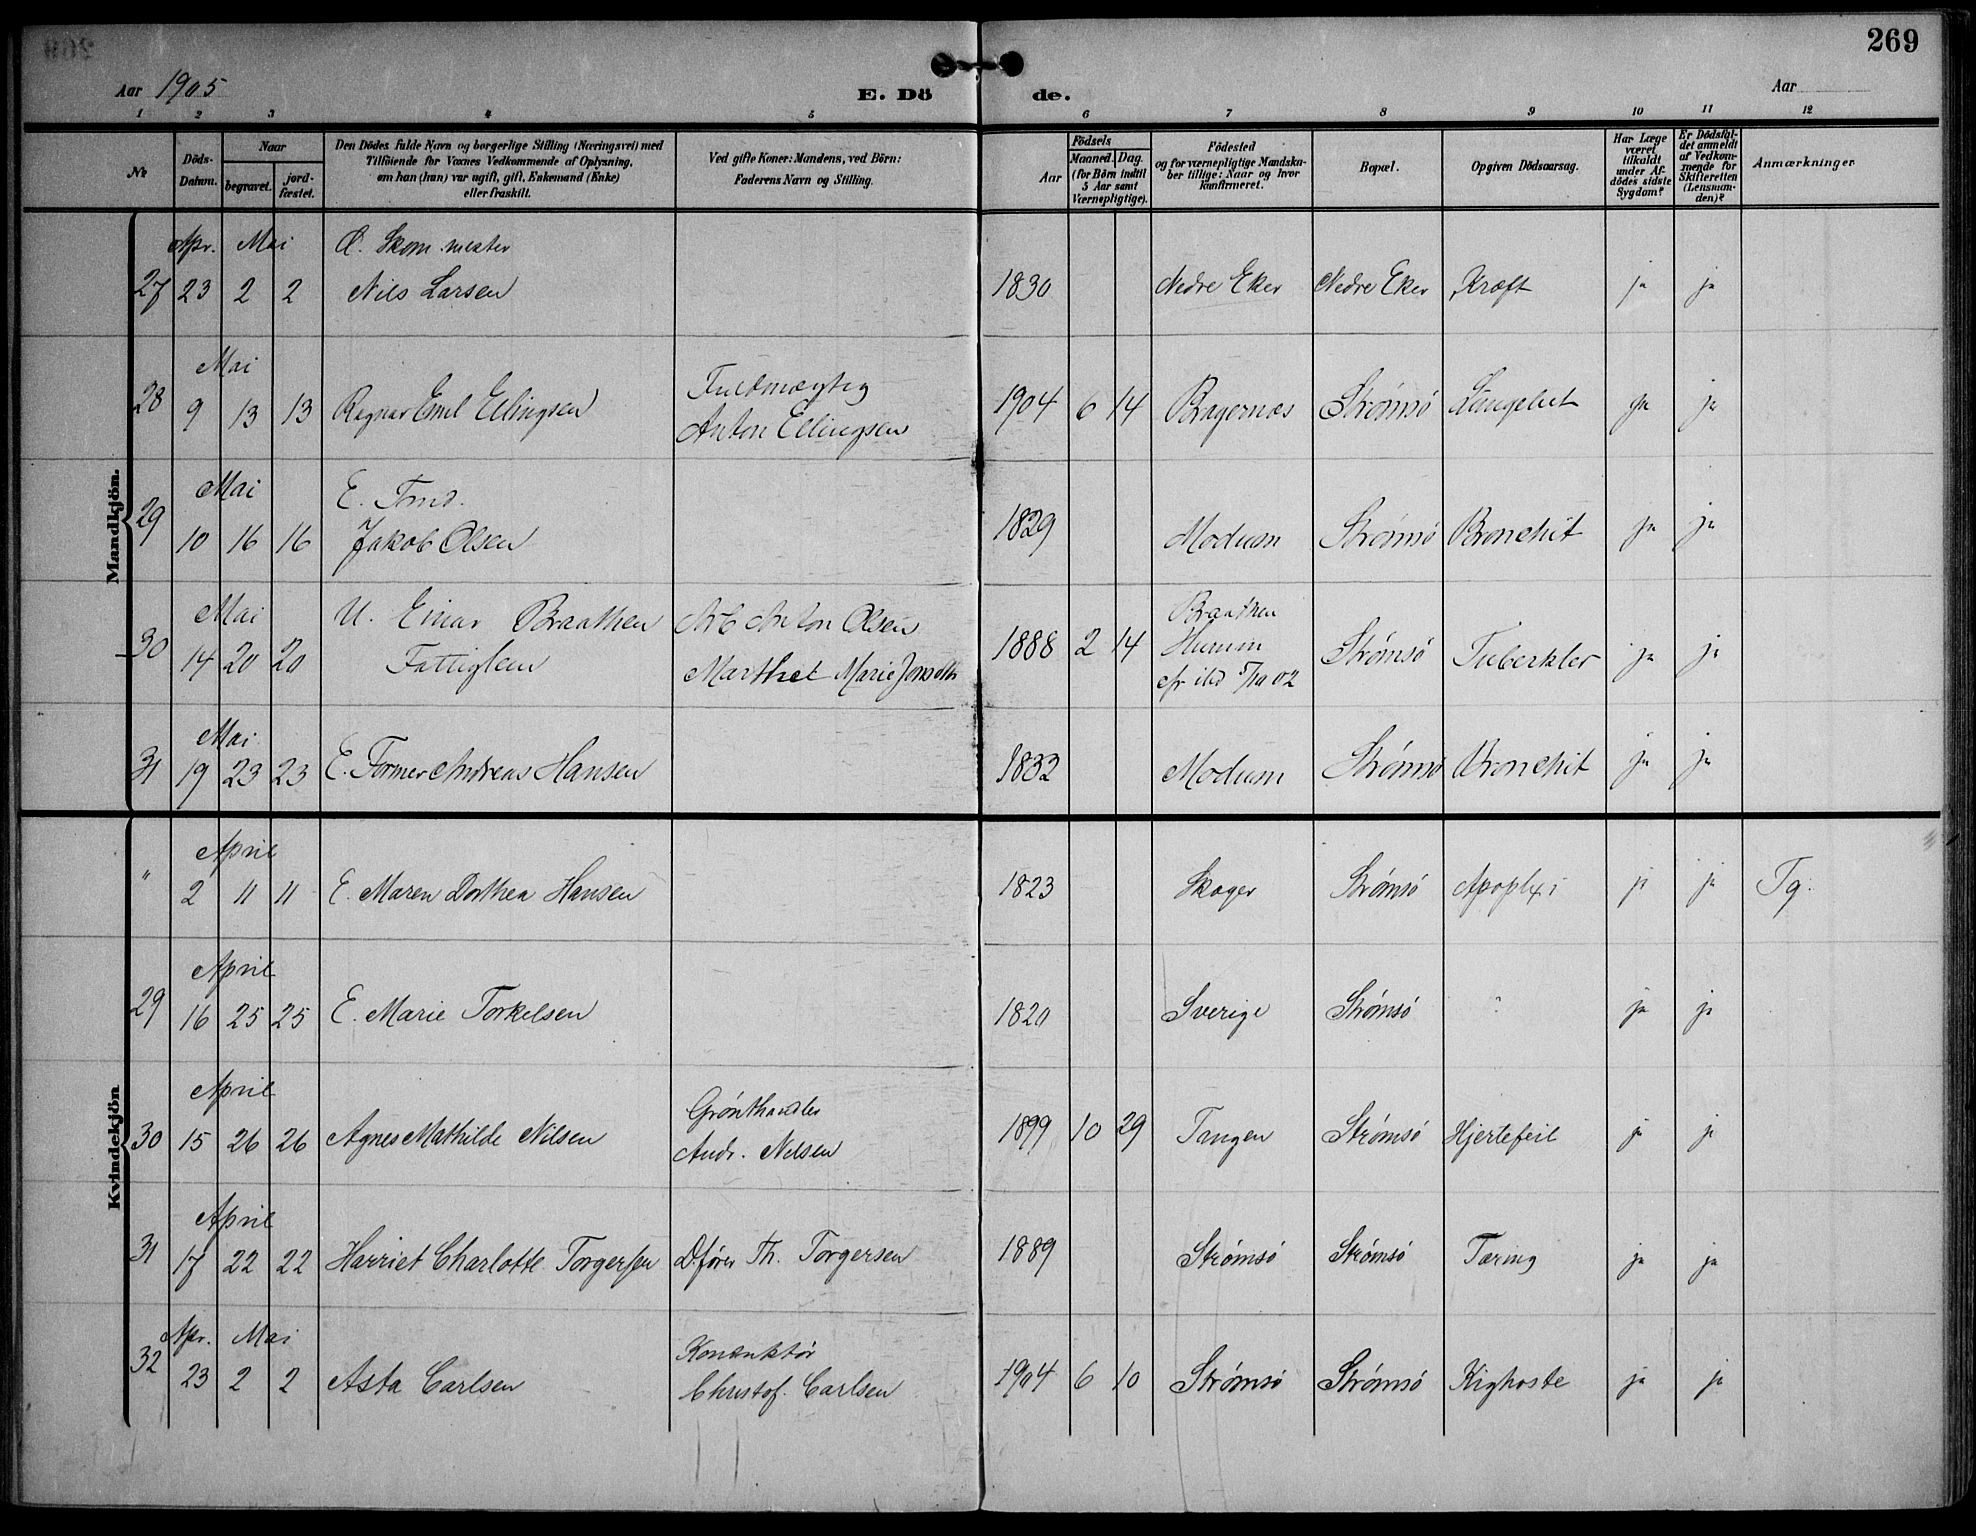 269
Aar 1905
E. Dö de.
Aar
1 2 3 4 5 6 7 8 9 10 11 12
№
Döds-Datum.
Naar
begravet.
jord-fæstet.
Den Dödes fulde Navn og borgerlige Stilling (Næringsvei) med
Tilföiende for Voxnes Vedkommende af Oplysning,
om han (hun) var ugift, gift, Enkemand (Enke)
eller fraskilt.
Ved gifte Koner: Mandens, ved Börn:
Faderens Navn og Stilling.
Födsels
Aar
Maaned. Dag.
(for Börn indtil
5 Aar samt
Værnepligtige).
Födested
og for værnepligtige Mandska-
ber tillige: Naar og hvor
konfirmeret.
Bopæl.
Opgiven Dödsaarsag.
Har Læge
været
tilkaldt
under Af-
dödes sidste
Sygdom?
Er Dödsfal-
det anmeldt
af Vedkom-
mende for
Skifteretten
(Lensman-
den)?
Anmærkninger
Mandkjön.
Apr. Mai
Skom.mester
27 23 2 2 Nils Larsen 1830 Nedre Eker Nedre Eker Kræft ja ja
Mai
Fuldmægtig
28 9 13 13 Ragnar Emil Ellingsen Anton Ellingsen 1904 6 14 Bragernæs Strømsø ja ja
Mai
E. Tømd.
29 10 16 16 Jakob Olsen 1829 Modum Strømsø Bronchit ja ja
Mai
U. Einar Braathen Arb Anton Olsen
Braathen
30 14 20 20 Fattiglem Marthe Marie 1888 2 14 Hurum Strømsø Tuberkler ja ja
5/10 02
Mai
31 19 23 23 E. Former Andreas Hansen 1832 Modum Strømsø Bronchit ja ja
Kvindekjön
April
" 2 11 11 E. Maren Dorthea Hansen 1823 Skoger Strømsø Apoplexi ja ja Tg.
April
29 16 25 25 E. Marie Torkelsen 1820 Sverige Strømsø " ja ja
April
Grønthandler
30 15 26 26 Agnes Mathilde Nilsen Andr. Nilsen 1899 10 29 Tangen Strømsø Hjertefeil ja ja
April
31 17 22 22 Harriet Charlotte Torgersen D.fører Th. Torgersen 1889 Strømsø Strømsø Tæring ja ja
Apr. Mai
Konduktør
32 23 2 2 Asta Carlsen Christof. Carlsen 1904 6 10 Strømsø Strømsø Kighoste ja ja